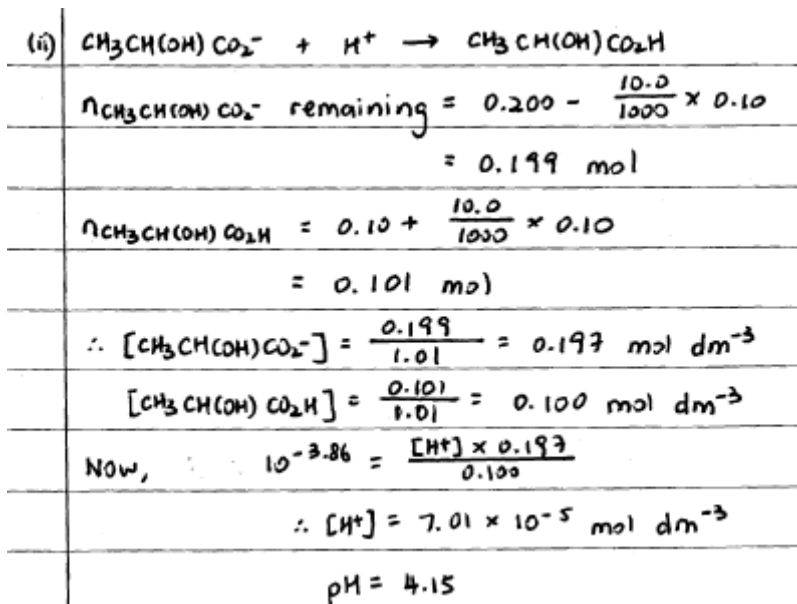 (ii) CH₃CH(OH)CO₂⁻ + H⁺ → CH₃CH(OH)CO₂H
nCH₃CH(OH)CO₂⁻ remaining = 0.200 - 10.0/1000 × 0.10
= 0.199 mol
nCH₃CH(OH)CO₂H = 0.10 + 10.0/1000 × 0.10
= 0.101 mol
∴ [CH₃CH(OH)CO₂⁻] = 0.199/1.01 = 0.197 mol dm⁻³
[CH₃CH(OH)CO₂H] = 0.101/1.01 = 0.100 mol dm⁻³
Now, 10⁻³·⁸⁶ = [H⁺] × 0.197/0.100
∴ [H⁺] = 7.01 × 10⁻⁵ mol dm⁻³
pH = 4.15